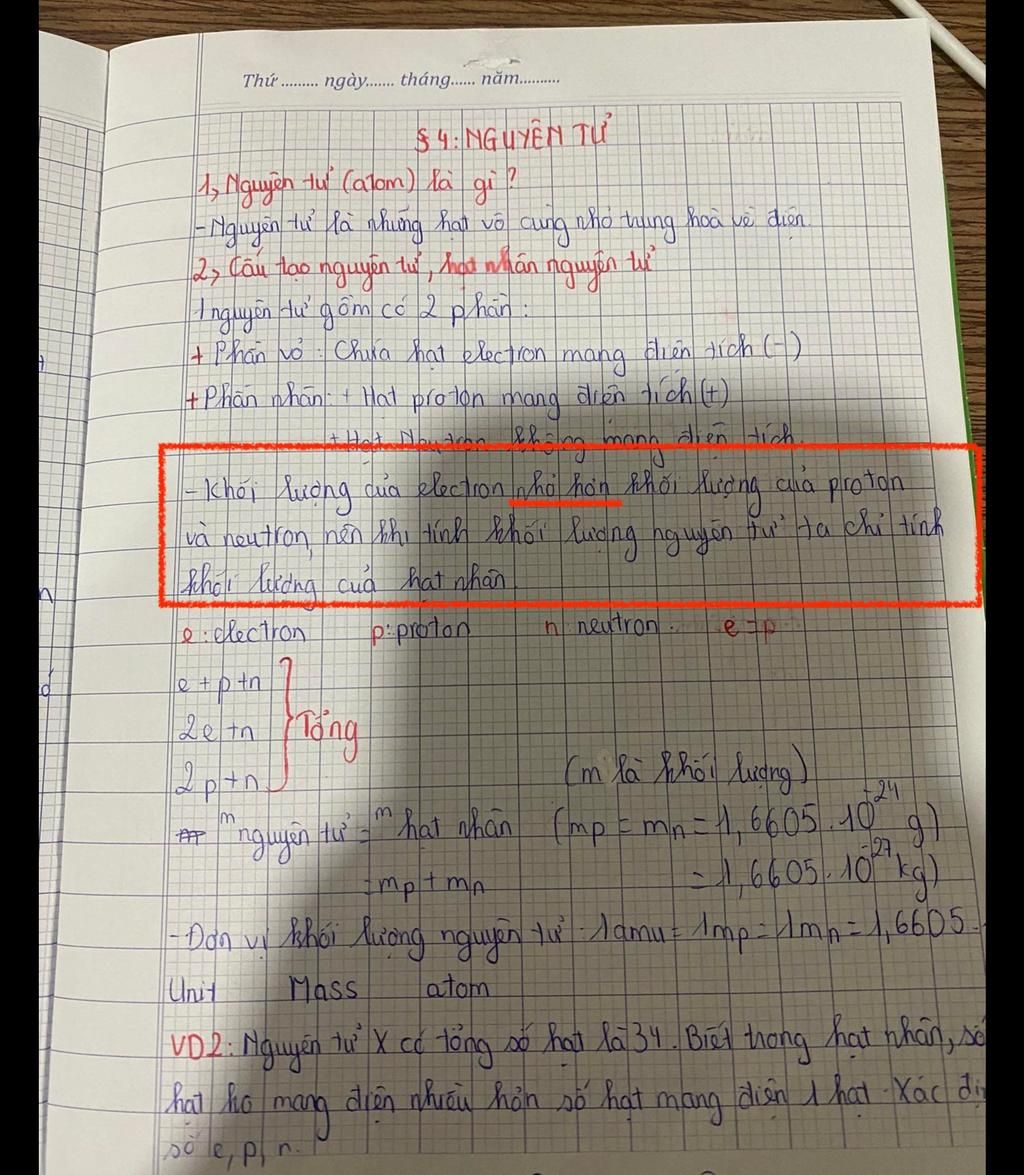 Thứ ......... ngày....... tháng...... năm..........
§ 4: NGUYÊN TỬ
1, Nguyên tử (atom) là gì?
- Nguyên tử là những hạt vô cùng nhỏ trung hoà về điện.
2, Cấu tạo nguyên tử, hạt nhân nguyên tử
1 nguyên tử gồm có 2 phần:
+ Phần vỏ: Chứa hạt electron mang điện tích (-)
+ Phần nhân: + Hạt proton mang điện tích (+)
+ Hạt Neutron không mang điện tích.
- Khối lượng của electron nhỏ hơn khối lượng của proton
và neutron, nên khi tính khối lượng nguyên tử ta chỉ tính
khối lượng của hạt nhân
e: electron p: proton n: neutron. e = p
e + p + n
2e + n
2p + n
Tổng
(m là khối lượng)
m nguyên tử = m hạt nhân (mp = mn = 1,6605.10⁻²⁴ g)
= mp + mn = 1,6605.10⁻²⁷ kg)
- Đơn vị khối lượng nguyên tử: 1amu = 1mp = 1mn = 1,6605.
Unit Mass atom
VD2: Nguyên tử X có tổng số hạt là 34. Biết trong hạt nhân, số
hạt ko mang điện nhiều hơn số hạt mang điện 1 hạt. Xác đị
số e, p, n.